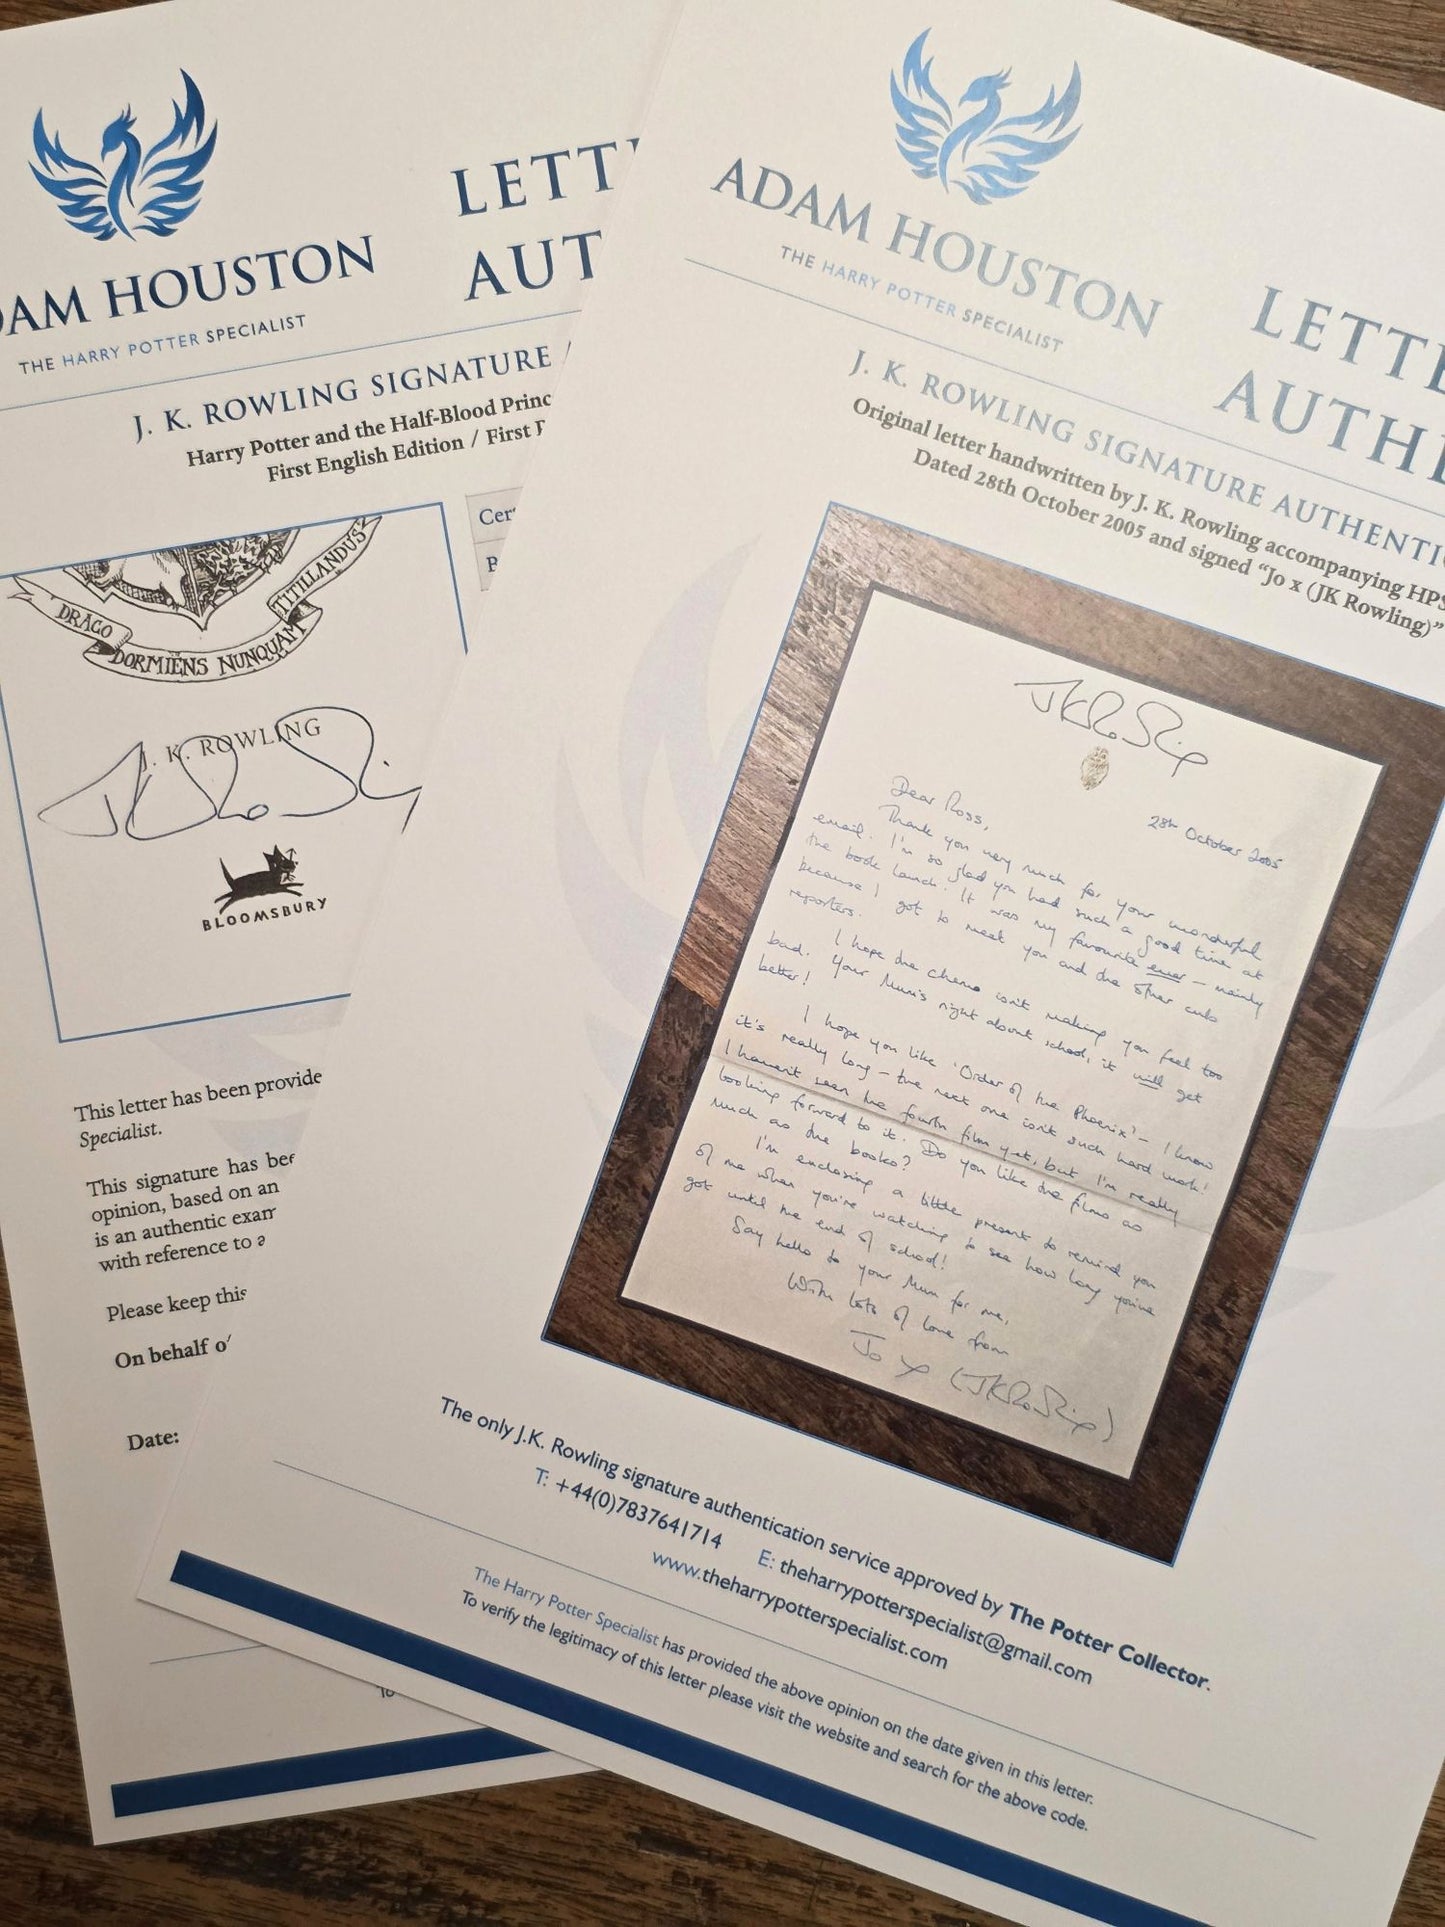 ADAM HOUSTON
THE HARRY POTTER SPECIALIST
LETT
AUT
J. K. ROWLING SIGNATURE
Harry Potter and the Half-Blood Princ
First English Edition / First
Cer
DRACO
DORMIENS NUNQUAM
TITILLANDUS
J. K. ROWLING
JK Rowling
BLOOMSBURY
This letter has been provide
Specialist.
This signature has bee
opinion, based on an
is an authentic exam
with reference to a
Please keep this
On behalf o
Date:
To
ADAM HOUSTON
THE HARRY POTTER SPECIALIST
LETTE
AUTHE
J. K. ROWLING SIGNATURE AUTHENTI
Original letter handwritten by J. K. Rowling accompanying HPS
Dated 28th October 2005 and signed “Jo x (JK Rowling)”
JK Rowling
28th October 2005
Dear Ross,
Thank you very much for your wonderful
email. I'm so glad you had such a good time at
the book launch. It was my favourite ever – mainly
because I got to meet you and the other cub
reporters.
I hope the chemo isn't making you feel too
bad. Your Mum's right about school, it will get
better!
I hope you like 'Order of the Phoenix' – I know
it's really long – the next one isn't such hard work!
I haven't seen the fourth film yet, but I'm really
looking forward to it. Do you like the films as
much as the books?
I'm enclosing a little present to remind you
of me when you're watching to see how long you've
got until the end of school!
Say hello to your Mum for me,
With lots of love from
Jo x (JK Rowling)
The only J.K. Rowling signature authentication service approved by The Potter Collector.
T: +44(0)7837641714 E: theharrypotterspecialist@gmail.com
www.theharrypotterspecialist.com
The Harry Potter Specialist has provided the above opinion on the date given in this letter.
To verify the legitimacy of this letter please visit the website and search for the above code.